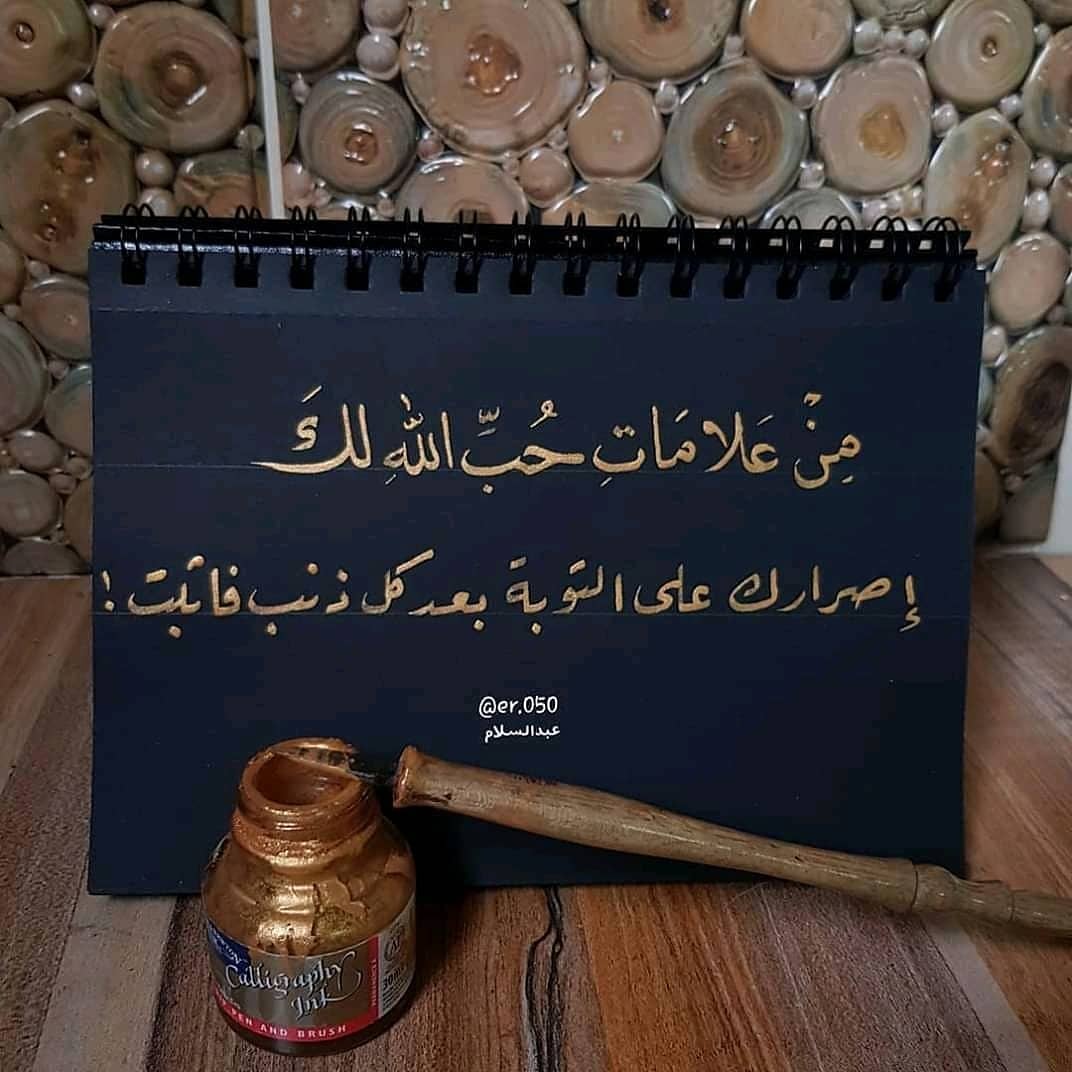 مِنْ عَلامَاتِ حُبِّ اللهِ لكَ
إصرارك على التوبة بعد كل ذنب فاثبت !
@er.050
عبدالسلام
Calligraphy
Ink
PEN AND BRUSH